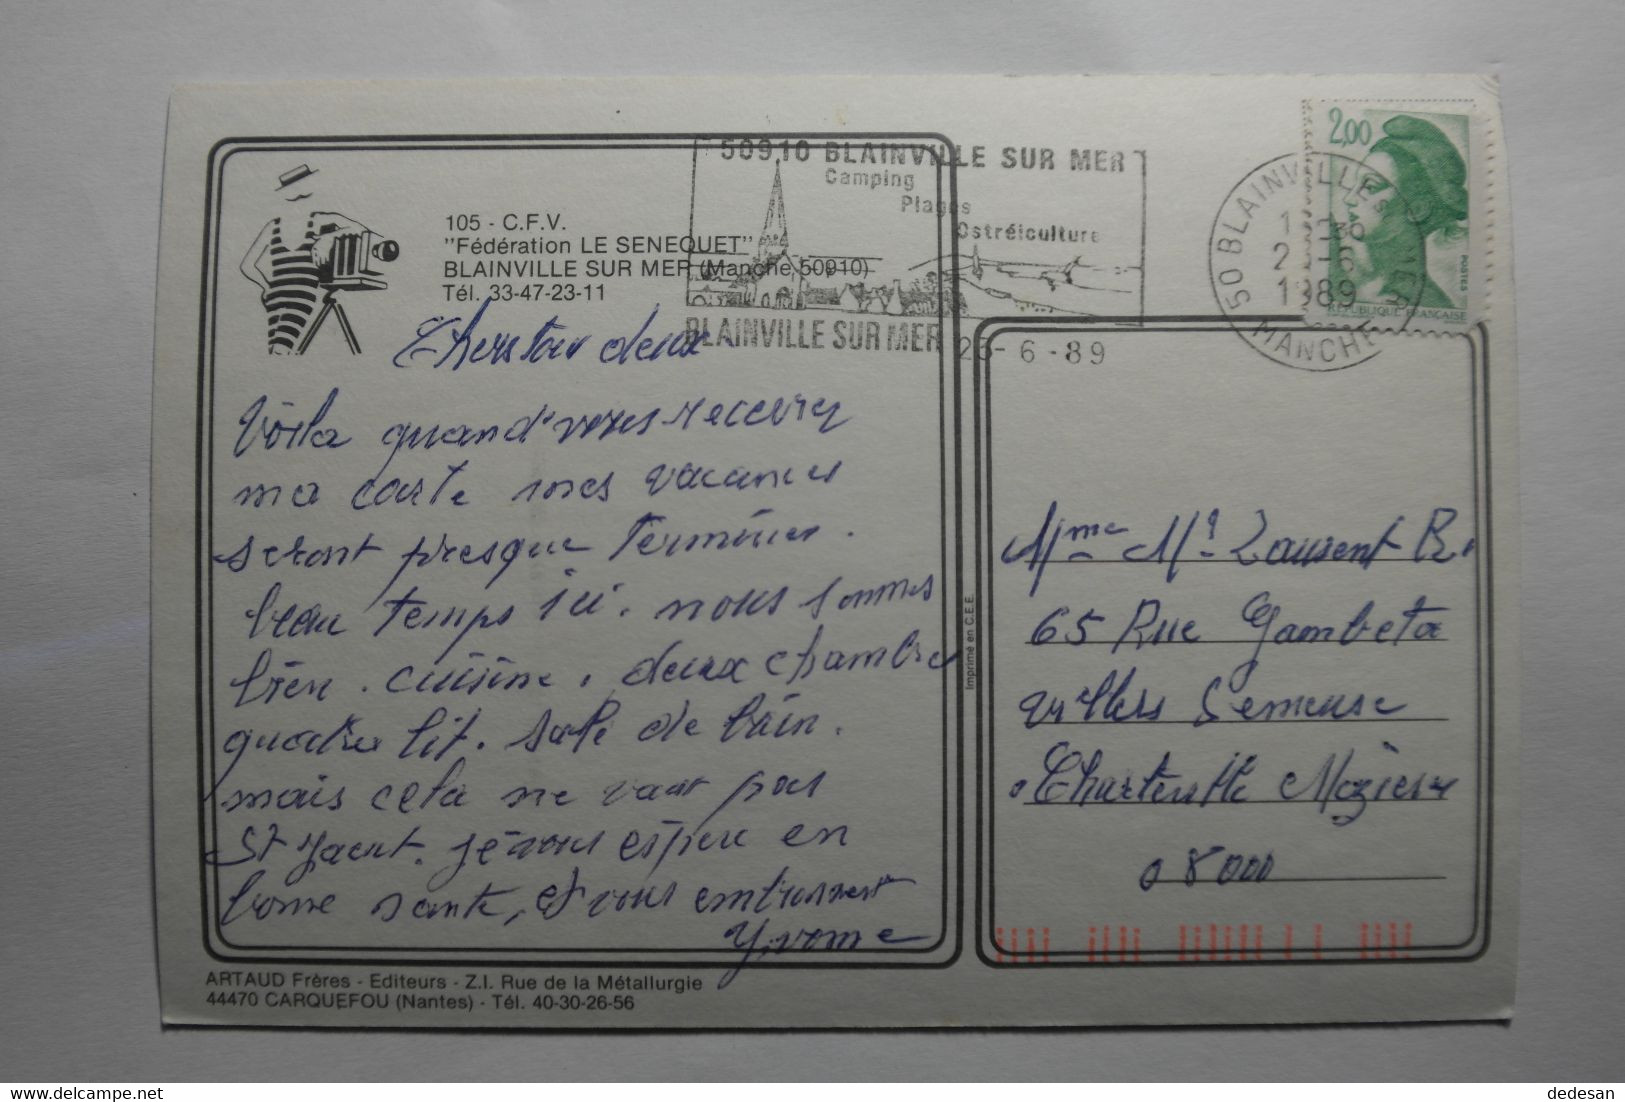 105 - C.F.V.
"Fédération LE SENEQUET"
BLAINVILLE SUR MER (Manche 50910)
Tél. 33-47-23-11
50910 BLAINVILLE SUR MER
Camping
Plages
Ostréiculture
BLAINVILLE SUR MER 26-6-89
50 BLAINVILLE S MER
1989
MANCHE
2,00
POSTES
REPUBLIQUE FRANÇAISE
Chers tou deux
Voila quand vous recevrez
ma carte mes vacances
seront presque terminées.
beau temps ici. nous sommes
bien. cuisine. deux chambre
quatre lit. salle de bain.
mais cela ne vaut pas
St Jacut. je vous espere en
bonne sante, et vous
Yvonne
Imprimé en C.E.E.
Mme Mr Laurent R.
65 Rue Gambeta
Villers Semeuse
Charleville Mézières
08000
ARTAUD Frères - Editeurs - Z.I. Rue de la Métallurgie
44470 CARQUEFOU (Nantes) - Tél. 40-30-26-56
dedesan
delcampe.net